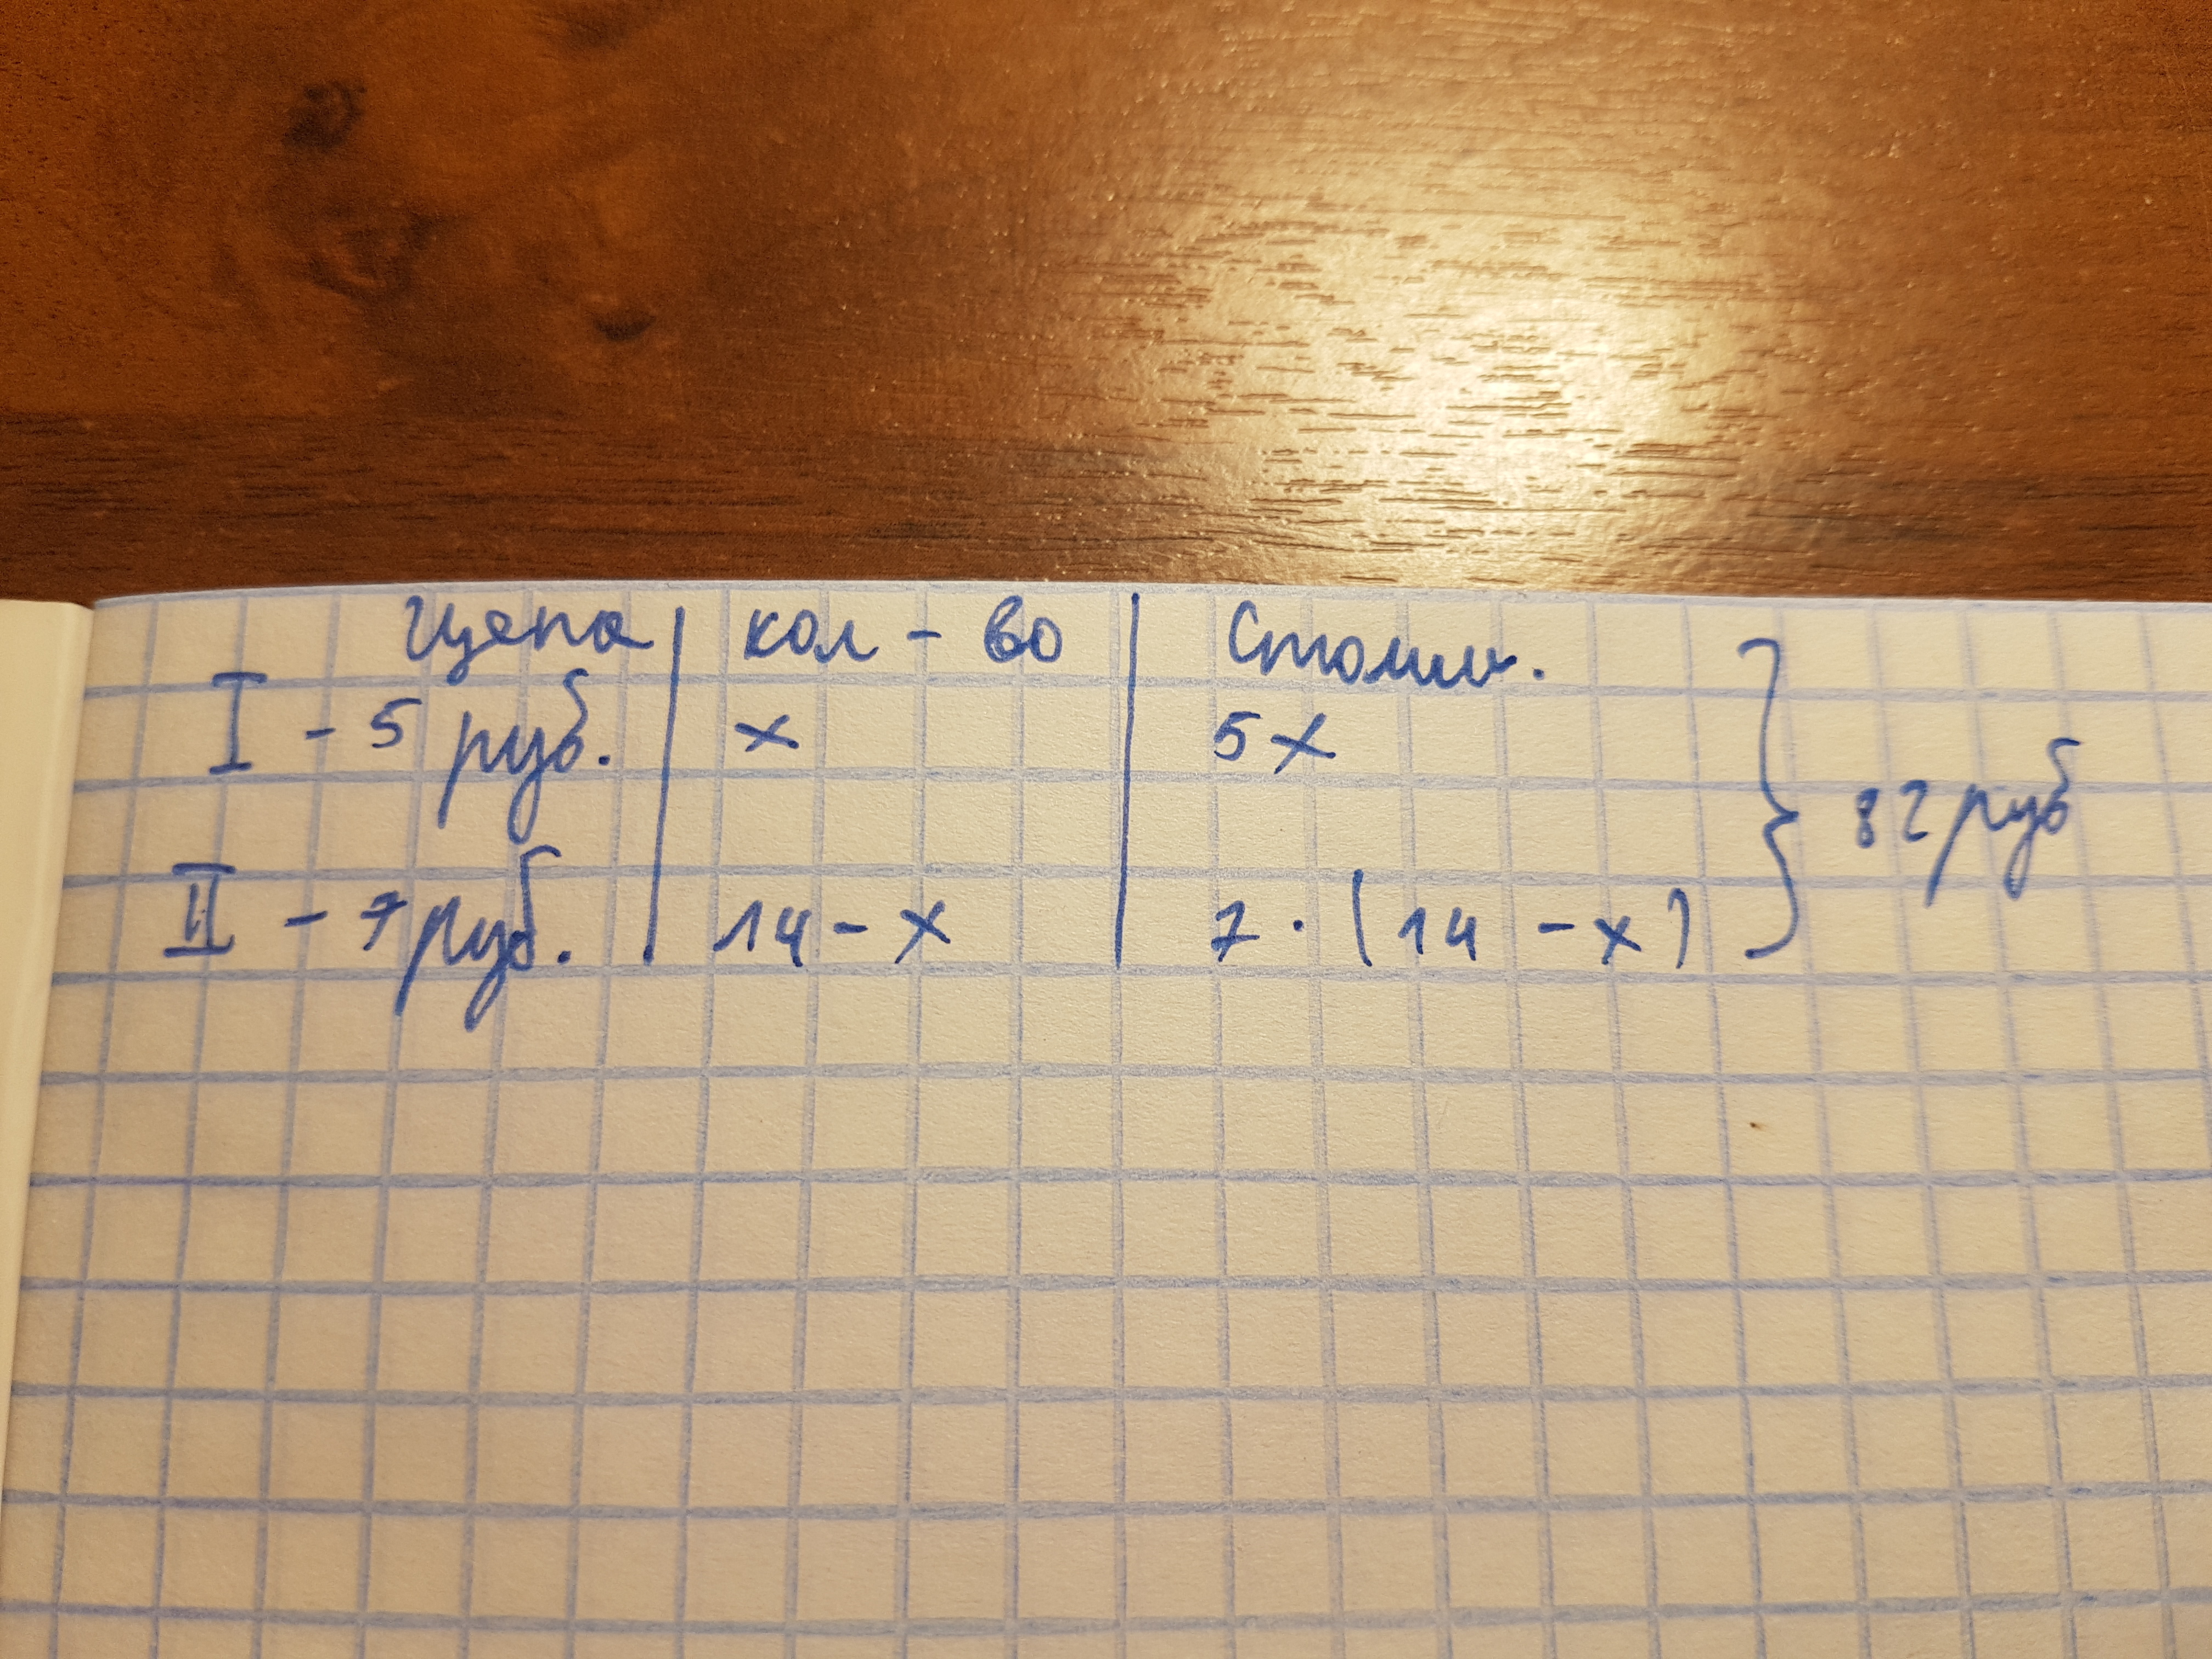 Цена | кол-во | Стоим.
I - 5 руб. | x | 5x
II - 7 руб. | 14 - x | 7 · (14 - x) } 82 руб